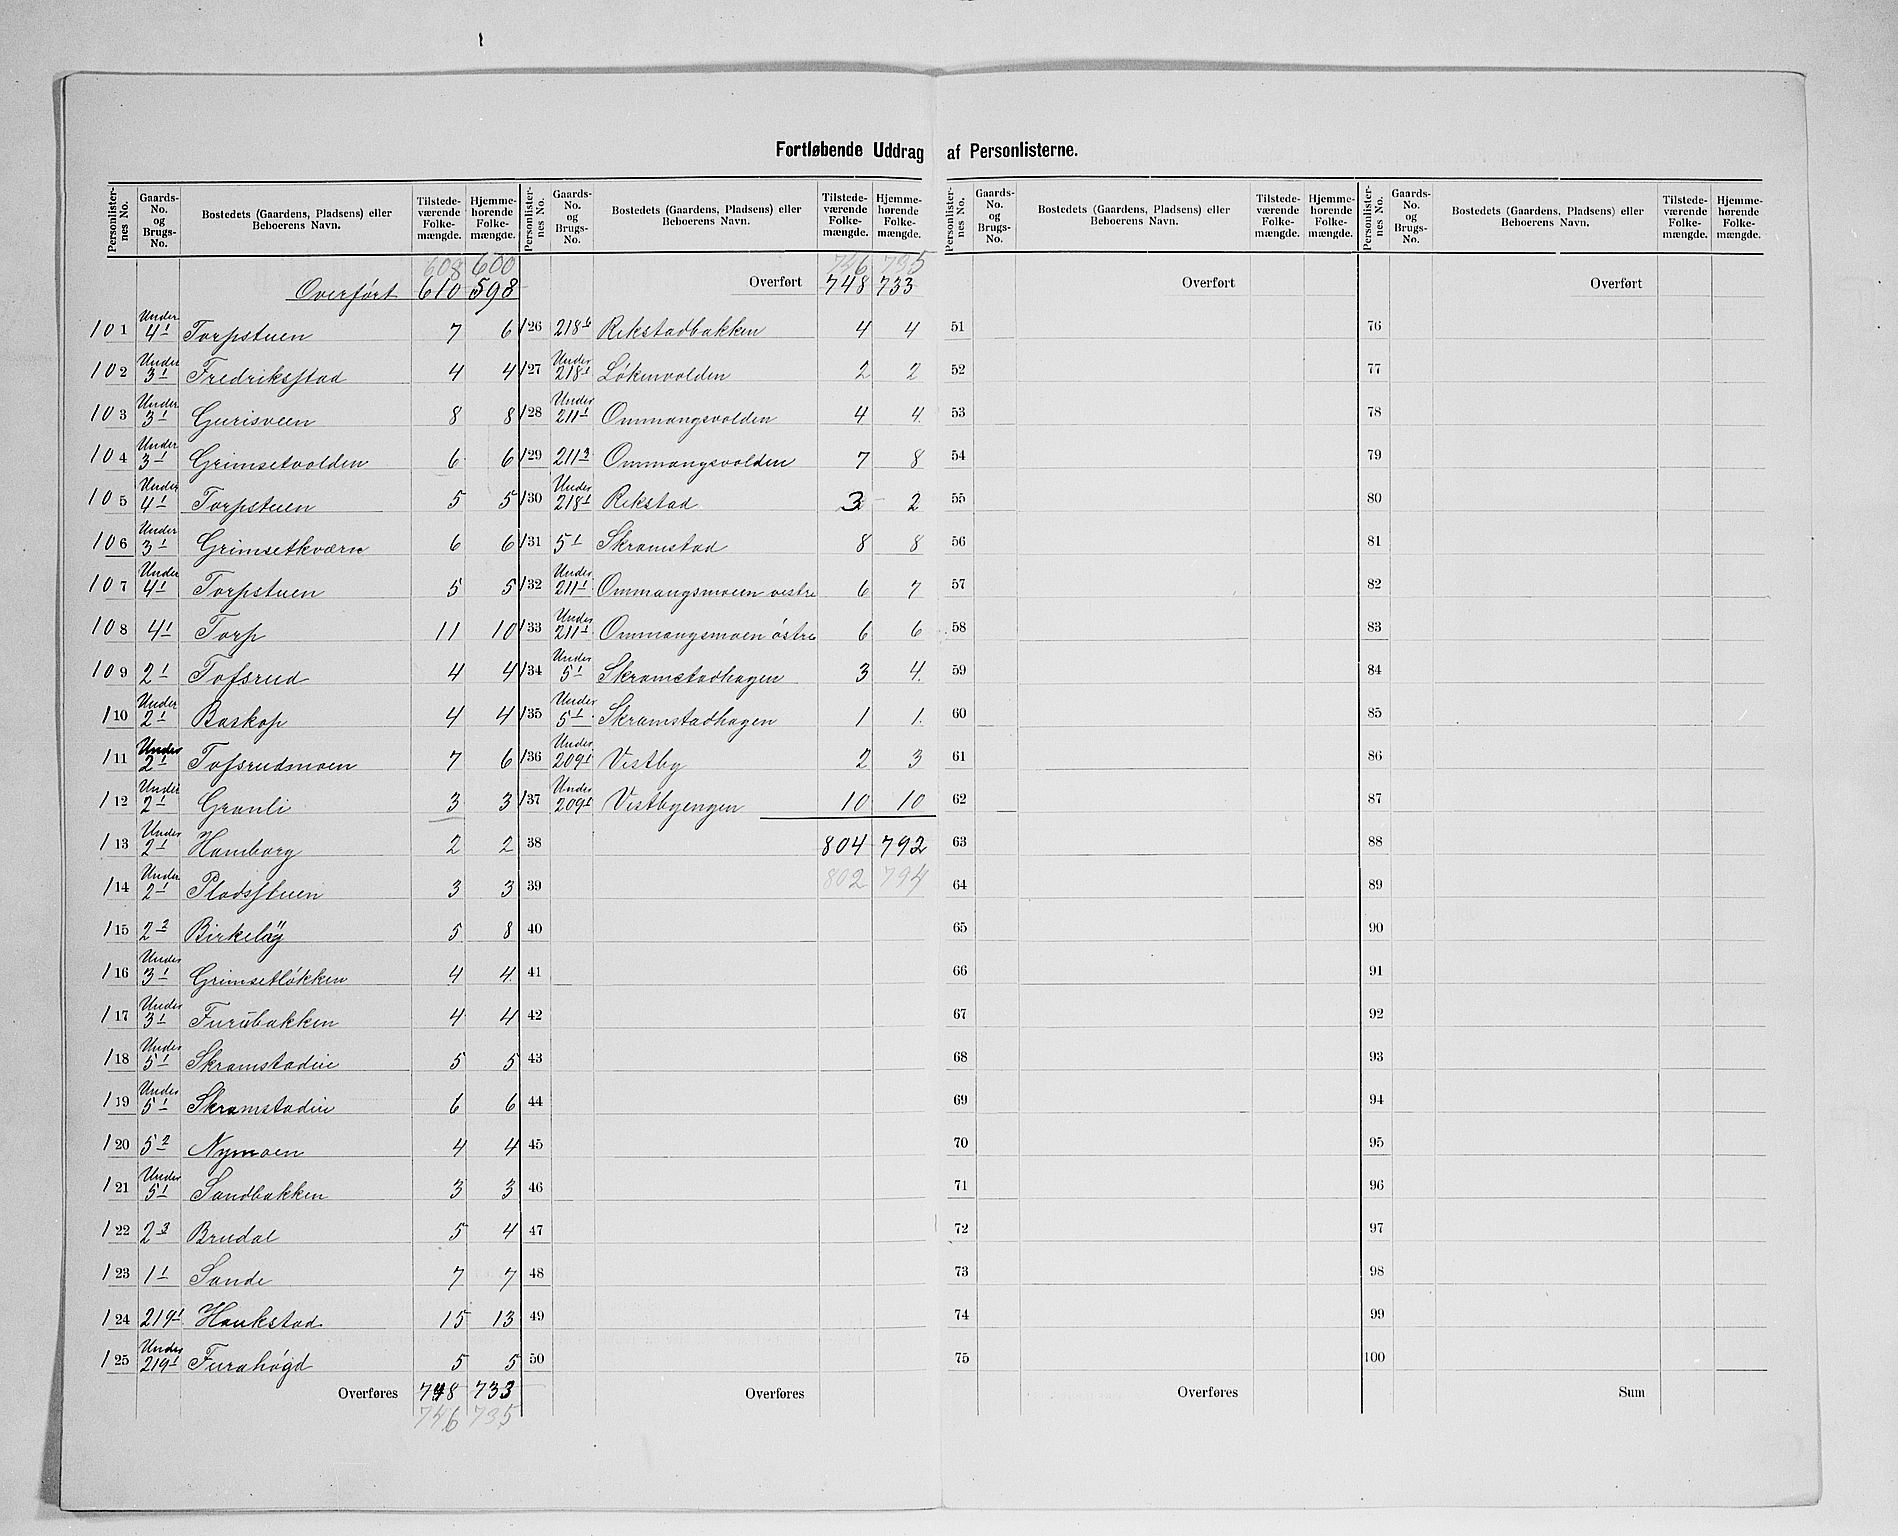 Fortløbende Uddrag af Personlisterne.
Personlisternes No. Gaards-No. og Brugs-No. Bostedets (Gaardens, Pladsens) eller Beboerens Navn. Tilstedeværende Folkemængde. Hjemmehørende Folkemængde.
608 600
Overført 610 598
101 Under 4¹ Torpstuen 7 6
102 Under 3¹ Fredriksstad 4 4
103 Under 3¹ Gurisveen 8 8
104 Under 3¹ Grimsetvolden 6 6
105 Under 4¹ Torpstuen 5 5
106 Under 3¹ Grimsetkværn 6 6
107 Under 4¹ Torpstuen 5 5
108 4¹ Torp 11 10
109 2¹ Tofsrud 4 4
110 Under 2¹ Baskop 4 4
111 Under 2¹ Tofsrudmoen 7 6
112 Under 2¹ Granli 3 3
113 Under 2¹ Hamborg 2 2
114 Under 2¹ Pladsstuen 3 3
115 2² 5 8
116 Under 3¹ Grimsetløkken 4 4
117 Under 3¹ Furubakken 4 4
118 Under 5¹ Skramstadeie 5 5
119 Under 5¹ Skramstadeie 6 6
120 5² Nymoen 4 4
121 Under 5¹ Sandbakken 3 3
122 2³ Brudal 5 4
123 1¹ Sande 7 7
124 219¹ Haukstad 15 13
125 Under 219¹ Furuhøgd 5 5
Overføres 748 733
746 735
Personlisternes No. Gaards-No. og Brugs-No. Bostedets (Gaardens, Pladsens) eller Beboerens Navn. Tilstedeværende Folkemængde. Hjemmehørende Folkemængde.
746 735
Overført 748 733
126 218⁶ Rekstadbakken 4 4
127 Under 218¹ Løkenvolden 2 2
128 Under 211¹ Ommangsvolden 4 4
129 211³ Ommangsvolden 7 8
130 Under 218¹ Rekstad 3 2
131 5¹ Skramstad 8 8
132 Under 211¹ Ommangsmoen vestre 6 7
133 Under 211¹ Ommangsmoen østre 6 6
134 Under 5¹ Skramstadhagen 3 4
135 Under 5¹ Skramstadhagen 1 1
136 Under 209¹ Vestby 2 3
137 Under 209¹ Vestbyengen 10 10
38 804 792
39 802 794
40
41
42
43
44
45
46
47
48
49
50
Overføres
Personlisternes No. Gaards-No. og Brugs-No. Bostedets (Gaardens, Pladsens) eller Beboerens Navn. Tilstedeværende Folkemængde. Hjemmehørende Folkemængde.
Overført
51
52
53
54
55
56
57
58
59
60
61
62
63
64
65
66
67
68
69
70
71
72
73
74
75
Overføres
Personlisternes No. Gaards-No. og Brugs-No. Bostedets (Gaardens, Pladsens) eller Beboerens Navn. Tilstedeværende Folkemængde. Hjemmehørende Folkemængde.
Overført
76
77
78
79
80
81
82
83
84
85
86
87
88
89
90
91
92
93
94
95
96
97
98
99
100
Sum